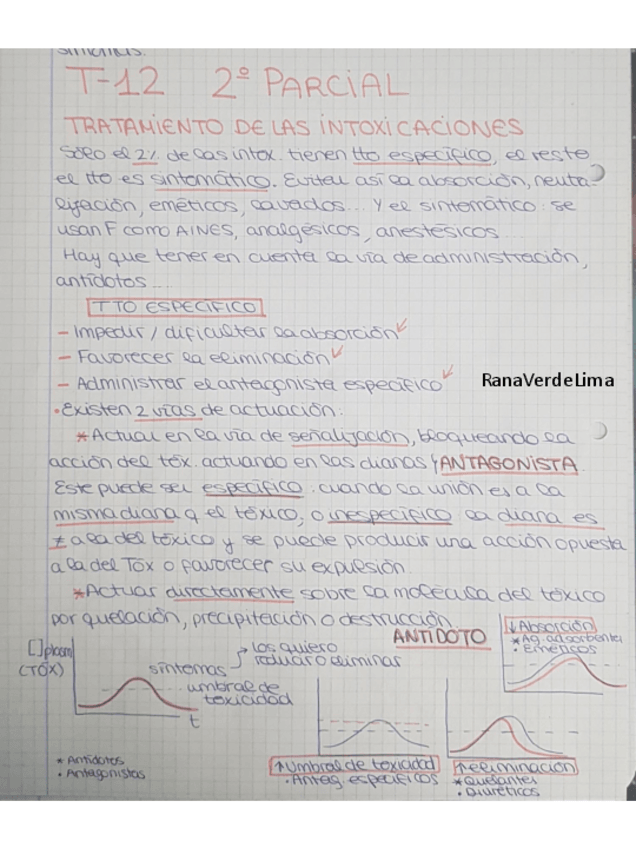 síntomas.
T-12 2º PARCIAL
TRATAMIENTO DE LAS INTOXICACIONES
Sólo el 2% de las intox. tienen tto específico, el resto
el tto es sintomático. Evitar así la absorción, neutra-
lización, eméticos, lavados... Y el sintomático: se
usan F como AINES, analgésicos, anestésicos...
Hay que tener en cuenta la vía de administración,
antídotos...
TTO ESPECÍFICO
- Impedir / dificultar la absorción
- Favorecer la eliminación
- Administrar el antagonista específico
RanaVerdeLima
• Existen 2 vías de actuación:
* Actuar en la vía de señalización, bloqueando la
acción del tóx. actuando en las dianas ANTAGONISTA
Este puede ser específico: cuando la unión es a la
misma diana q el tóxico, o inespecífico la diana es
≠ a la del tóxico y se puede producir una acción opuesta
a la del Tóx o favorecer su expulsión.
* Actuar directamente sobre la molécula del tóxico
por quelación, precipitación o destrucción.
ANTÍDOTO
↓ Absorción
* Ag. adsorbentes
• Eméticos
[ ] plasm
(TÓX)
síntomas → los quiero
reducir o eliminar
umbral de
toxicidad
t
* Antídotos
• Antagonistas
↑ Umbral de toxicidad
• Antag. específicos
↑ eliminación
* Quelantes
• Diuréticos